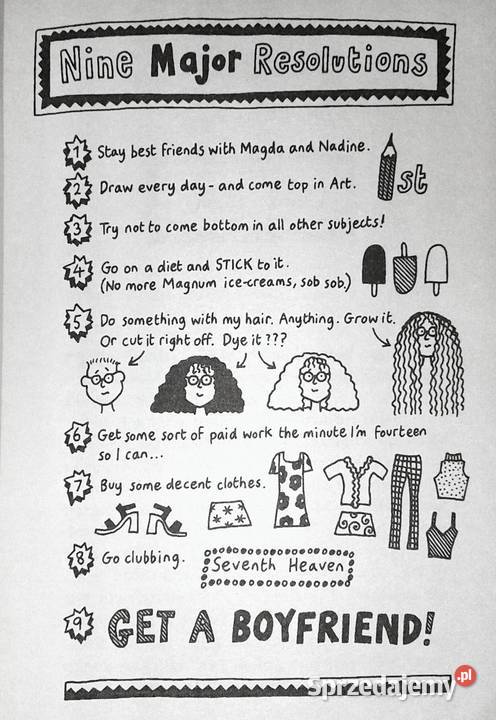 Nine Major Resolutions
1 Stay best friends with Magda and Nadine.
2 Draw every day - and come top in Art.
1st
3 Try not to come bottom in all other subjects!
4 Go on a diet and STICK to it.
(No more Magnum ice-creams, sob sob.)
5 Do something with my hair. Anything. Grow it.
Or cut it right off. Dye it???
6 Get some sort of paid work the minute I'm fourteen
so I can...
7 Buy some decent clothes.
8 Go clubbing.
Seventh Heaven
9 GET A BOYFRIEND!
Sprzedajemy.pl